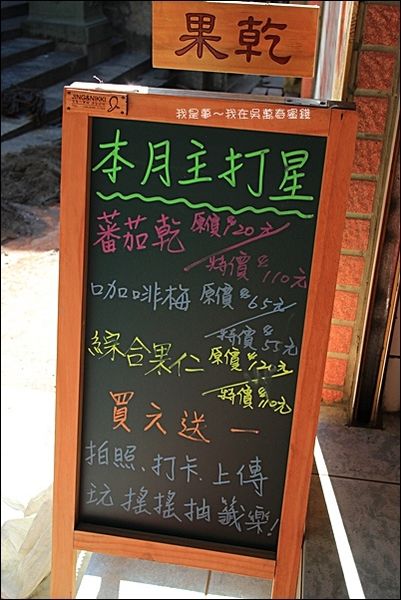 果乾
JING&NIKKI
我是夢～我在吳萬春蜜餞
本月主打星
蕃茄乾 原價$120元
特價$110元
咖啡梅 原價$65元
特價$55元
綜合果仁 原價$120元
特價$110元
買六送一
拍照、打卡、上傳
玩搖搖抽籤樂!